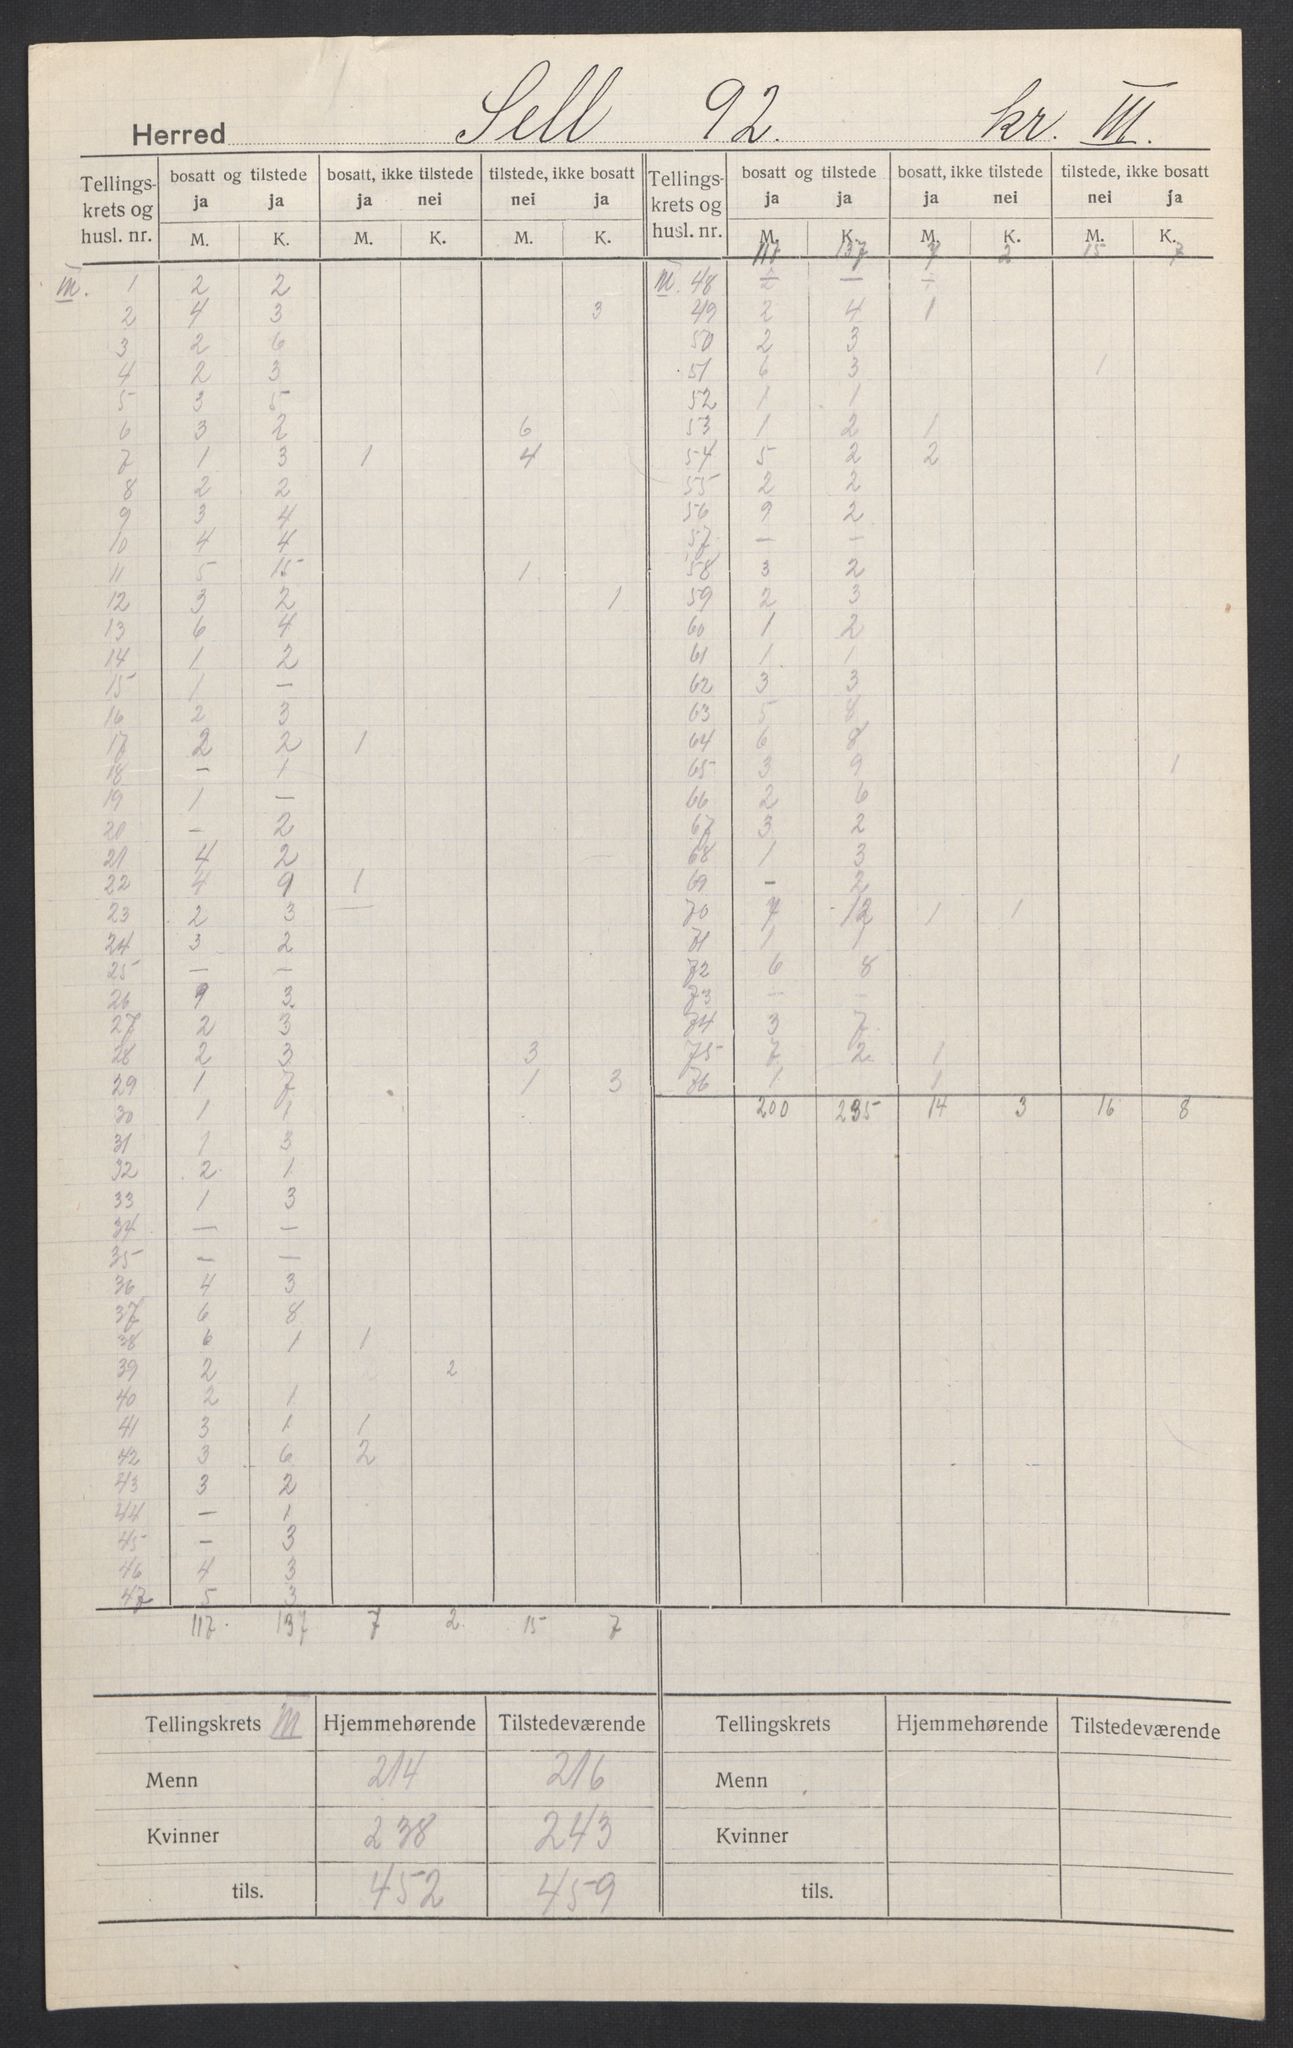 Herred Sell 92. kr. III.
Tellings-krets og husl. nr. | bosatt og tilstede ja ja | bosatt, ikke tilstede ja nei | tilstede, ikke bosatt nei ja | Tellings-krets og husl. nr. | bosatt og tilstede ja ja | bosatt, ikke tilstede ja nei | tilstede, ikke bosatt nei ja
M. K. M. K. M. K. M. K. M. K. M. K.
117 137 7 2 15 7
III. 1 2 2
2 4 3 3
3 2 6
4 2 3
5 3 5
6 3 2 6
7 1 3 1 4
8 2 2
9 3 4
10 4 4
11 5 15 1
12 3 2 1
13 6 4
14 1 2
15 1 –
16 2 3
17 2 2 1
18 – 1
19 1 –
20 – 2
21 4 2
22 4 9 1
23 2 3 —
24 3 2
25 – –
26 9 3
27 2 3
28 2 3 3
29 1 7 1 3
30 1 1
31 1 3
32 2 1
33 1 3
34 – –
35 – –
36 4 3
37 6 8
38 6 1 1
39 2 2
40 2 1
41 3 1 1
42 3 6 2
43 3 2
44 – 1
45 – 3
46 4 3
47 5 3
117. 137 7 2 15 7
III. 48 – –
49 2 4 1
50 2 3
51 6 3 1
52 1 1
53 1 2 1
54 5 2 2
55 2 2
56 9 2
57 – –
58 3 2
59 2 3
60 1 2
61 1 1
62 3 3
63 5 8
64 6 8
65 3 9 1
66 2 6
67 3 2
68 1 3
69 – 2
70 7 12 1 1
71 1 1
72 6 8
73 – –
74 3 7
75 7 2 1
76 1 1
200 235 14 3 16 8
Tellingskrets III Hjemmehørende Tilstedeværende Tellingskrets Hjemmehørende Tilstedeværende
Menn 214 216 Menn
Kvinner 238 243 Kvinner
tils. 452 459 tils.